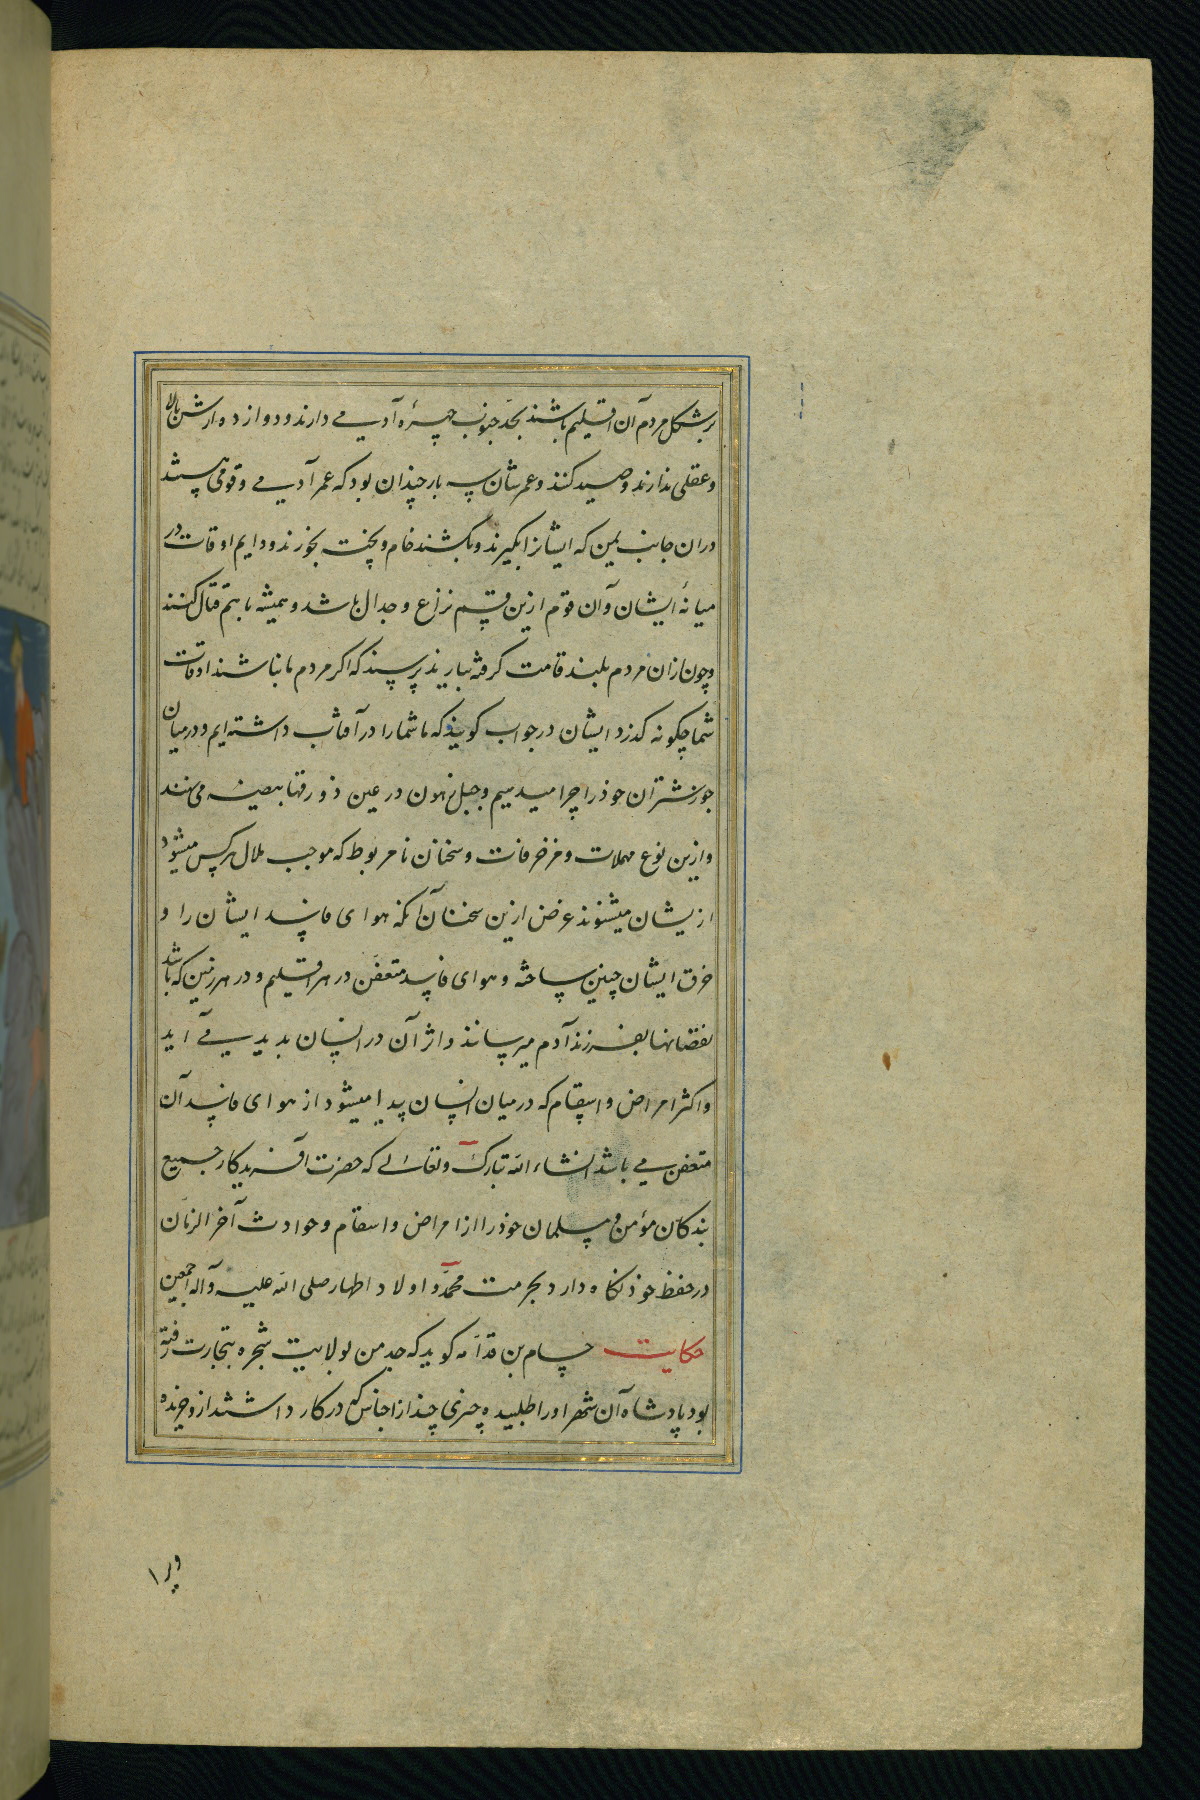 بر شکل مردم آن اقلیم باشند بحد جنوب چهرهٔ آدمی دارند و دوازده ارش بالا
و عقلی ندارند و صید کنند و عمرشان سه بار چندان بود که عمر آدمی و قومی هستند
در ان جانب یمن که ایشانرا بگیرند و بکشند خام و پخته بخورند و دایم اوقات در
میانهٔ ایشان و آن قوم ازین قسم نزاع و جدال باشد و همیشه با هم قتال کنند
و چون ازان مردم بلند قامت کرفته بیارند پرسند که اکر مردم ما نباشند اوقات
شما چکونه کذرد ایشان در جواب کویند که ما شما را در آفتاب داشته‌ایم و در میان
شتران خوذ را چرا میدهیم و در عین می نهند
و ازین نوع مهملات و مزخرفات و سخنان نامربوط که موجب ملال هرکس میشود
ازیشان میشنوند غرض ازین سخنان آنکه هوای فاسد ایشان را و
خرق ایشان چنین ساخته و هوای فاسد متعفن در هر اقلیم و در هر زمین که باشد
نقصانها بفرزند آدم میرسانند و اثر آن در انسان بدید می آید
و اکثر امراض و اسقام که در میان انسان پیدا میشود از هوای فاسد آن
متعفن می باشد انشاء الله تبارک و تعالی که حضرت آفریدکار جمیع
بندکان مؤمن و مسلمان خوذ را از امراض و اسقام و حوادث آخر الزمان
در حفظ خوذ نکاه دارد بحرمت محمد و اولاد اطهار صلی الله علیه و آله اجمعین
حکایت حسام بن قدامه کوید که جد من بولایت شجره بتجارت رفته
بود پادشاه آن شهر او را طلبیده چیزی چند از اجناس که در کار داشتند ازو خریده
و او را